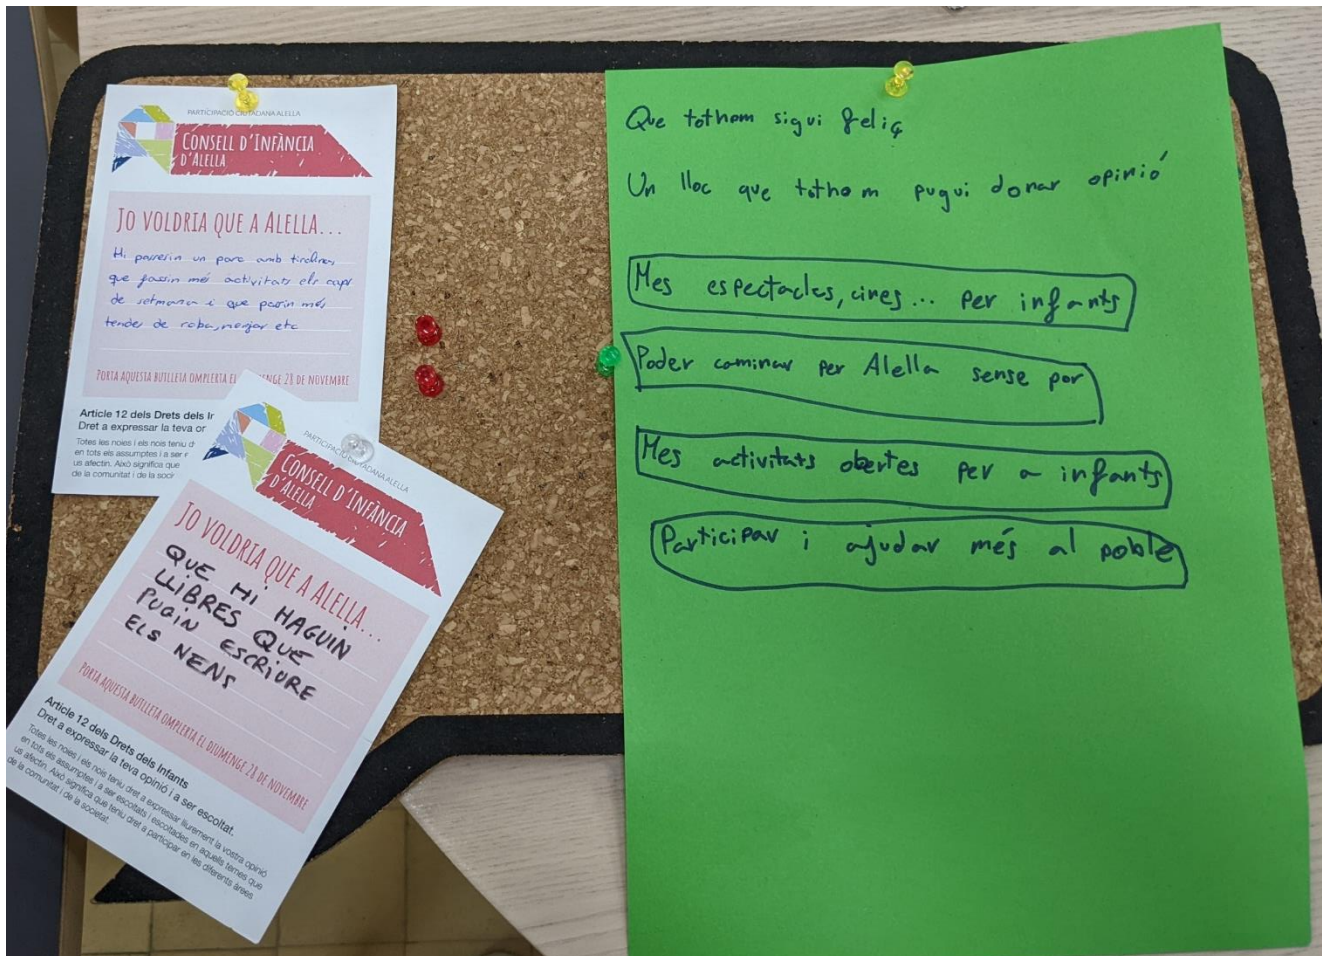 PARTICIPACIÓ CIUTADANA ALELLA
CONSELL D'INFÀNCIA
D'ALELLA
JO VOLDRIA QUE A ALELLA...
Hi posessin un parc amb tirolines,
que fassin més activitats els caps
de setmana i que posin més
tendes de roba, menjar etc
PORTA AQUESTA BUTLLETA OMPLERTA EL DIUMENGE 28 DE NOVEMBRE
Article 12 dels Drets dels In
Dret a expressar la teva or
Totes les noies i els nois teniu d
en tots els assumptes i a ser
us afectin. Això significa que
de la comunitat i de la soci
PARTICIPACIÓ CIUTADANA ALELLA
CONSELL D'INFÀNCIA
D'ALELLA
JO VOLDRIA QUE A ALELLA...
QUE HI HAGUIN
LLIBRES QUE
PUGIN ESCRIURE
ELS NENS
PORTA AQUESTA BUTLLETA OMPLERTA EL DIUMENGE 28 DE NOVEMBRE
Article 12 dels Drets dels Infants
Dret a expressar la teva opinió i a ser escoltat.
Totes les noies i els nois teniu dret a expressar lliurement la vostra opinió
en tots els assumptes i a ser escoltats i escoltades en aquells temes que
us afectin. Això significa que teniu dret a participar en les diferents àrees
de la comunitat i de la societat.
Que tothom sigui feliç
Un lloc que tothom pugui donar opinió
Mes espectacles, cines... per infants
Poder caminar per Alella sense por
Mes activitats obertes per a infants
Participar i ajudar més al poble